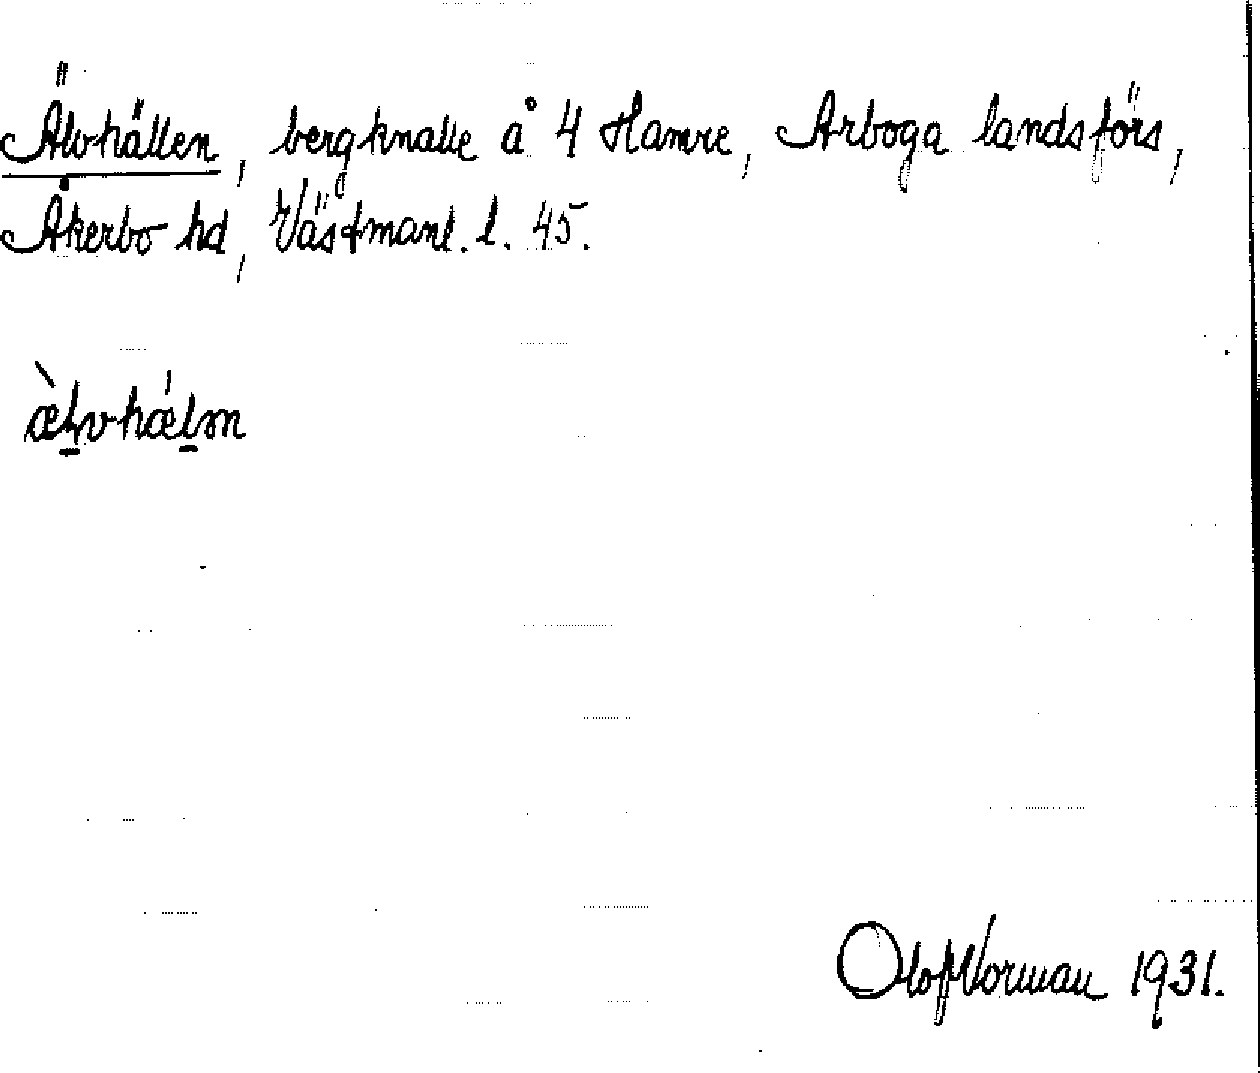 Älvhällen, bergknalle å 4 Hamre, Arboga landsförs,
Åkerbo hd, Västmanl. l. 45.
æ̀lvhǽlsn
Olof Norman 1931.